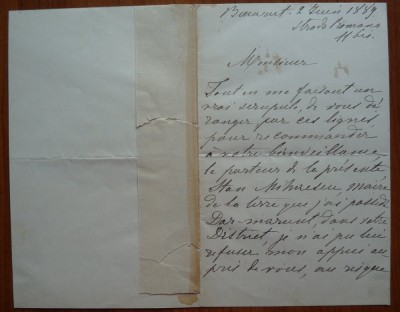 Bucarest. 2 Juin 1889
Strada Romana
11 bis.
Monsieur
Tout en me faisant un
vrai scrupule, de vous dé
ranger par ces lignes
pour recommander
à votre bienveillance,
le porteur de la présente
Stan Mihaescu, maire
de la terre que j'ai possédé
dans votre
District, je n'ai pu lui
refuser mon appui au
près de vous, au risque